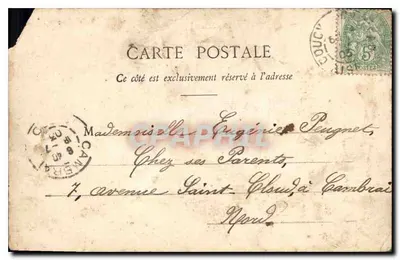 CARTE POSTALE
Ce côté est exclusivement réservé à l'adresse
Mademoiselle Eugénie Peugnet
Chez ses Parents,
7, avenue Saint-Cloud, à Cambrai
Nord.